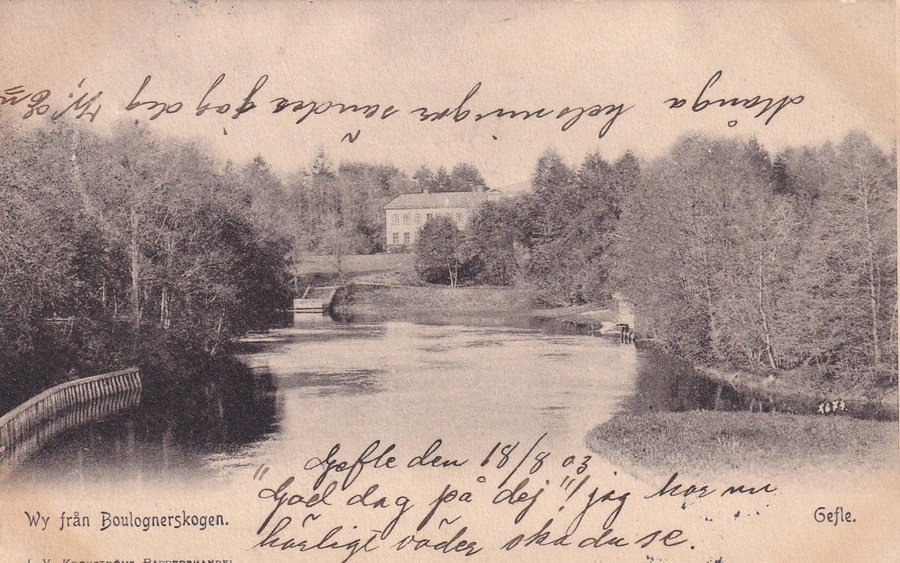 Många helsningar sänder jag dig
Gefle den 18/8 03
"God dag på dej"! jag har nu
härligt väder ska du se.
Wy från Boulognerskogen.
Gefle.
1674.